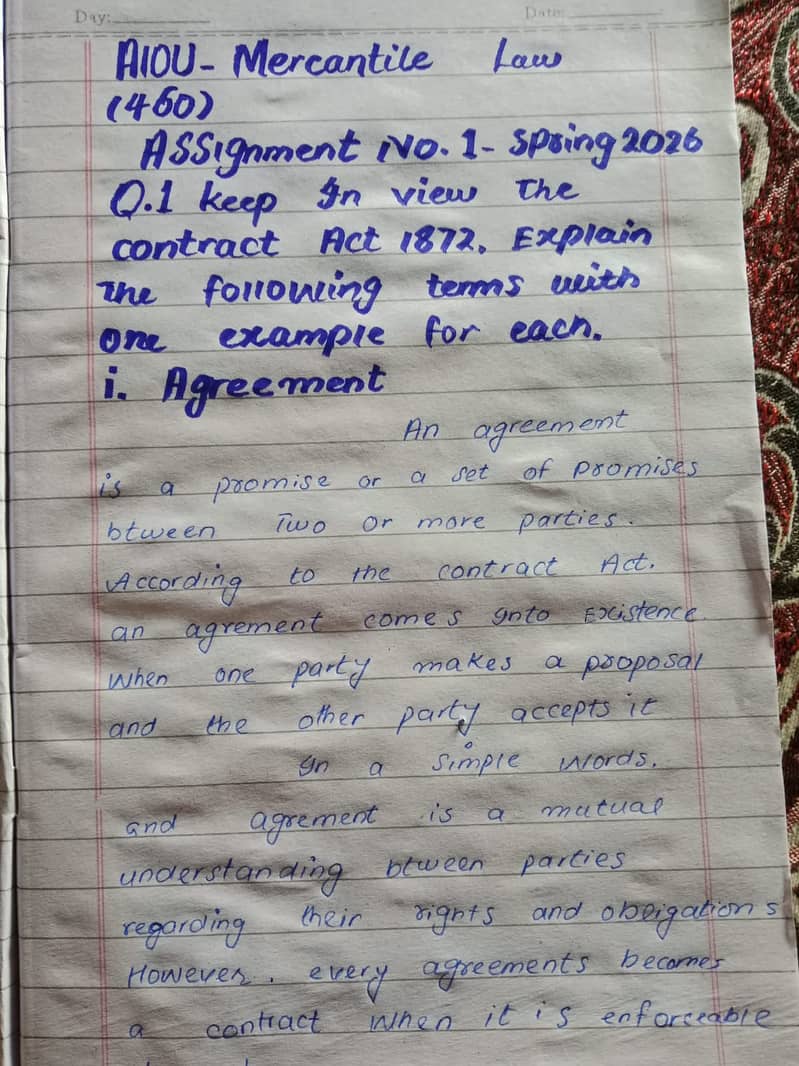 Day:
Date:
AIOU- Mercantile Law
(460)
Assignment No. 1- Spring 2026
Q.1 keep In view The
contract Act 1872, Explain
The following terms with
one example for each.
i. Agreement
An agreement
is a promise or a set of promises
btween Two or more parties.
According to the contract Act.
an agrement comes Into Existence
when one party makes a proposal
and the other party accepts it
In a simple words,
and agrement is a mutual
understanding btween parties
regarding their rights and obligations
However, every agreements becomes
a contract when it is enforceable